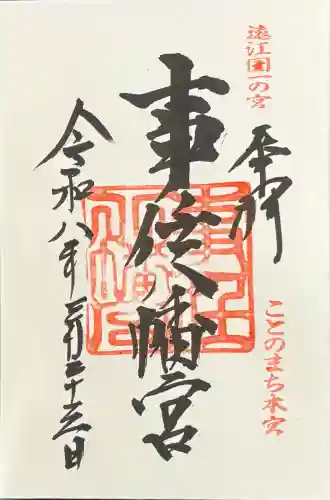 遠江國一の宮
奉拝
ことのまち本宮
事任八幡宮
令和八年三月二十三日